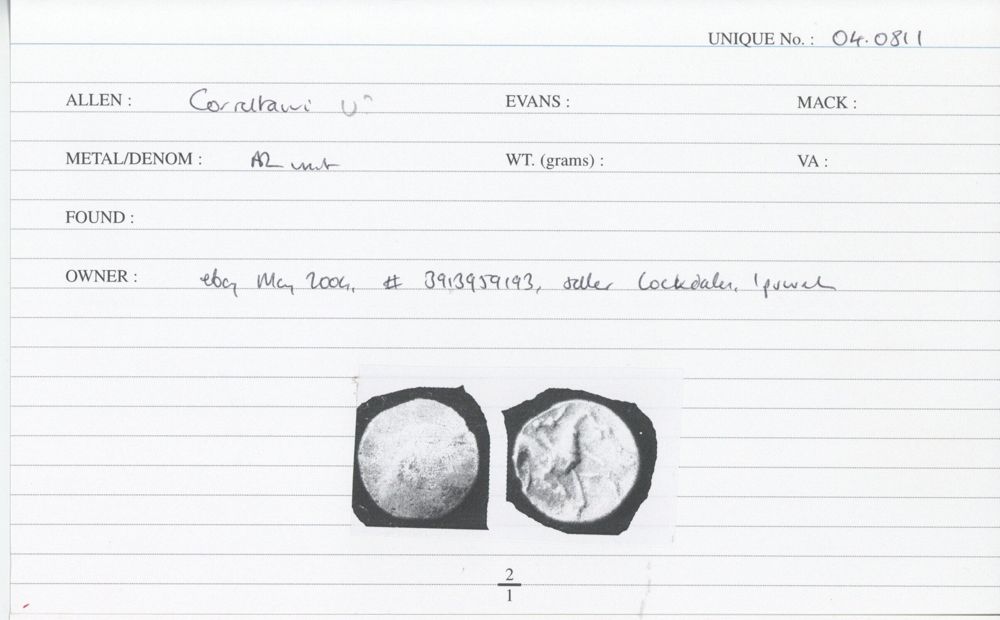 UNIQUE No. : 04.0811
ALLEN : Corieltauvi U
EVANS :
MACK :
METAL/DENOM : AR unit
WT. (grams) :
VA :
FOUND :
OWNER : ebay May 2004, # 3913959193, seller Lockdales, Ipswich
2
1